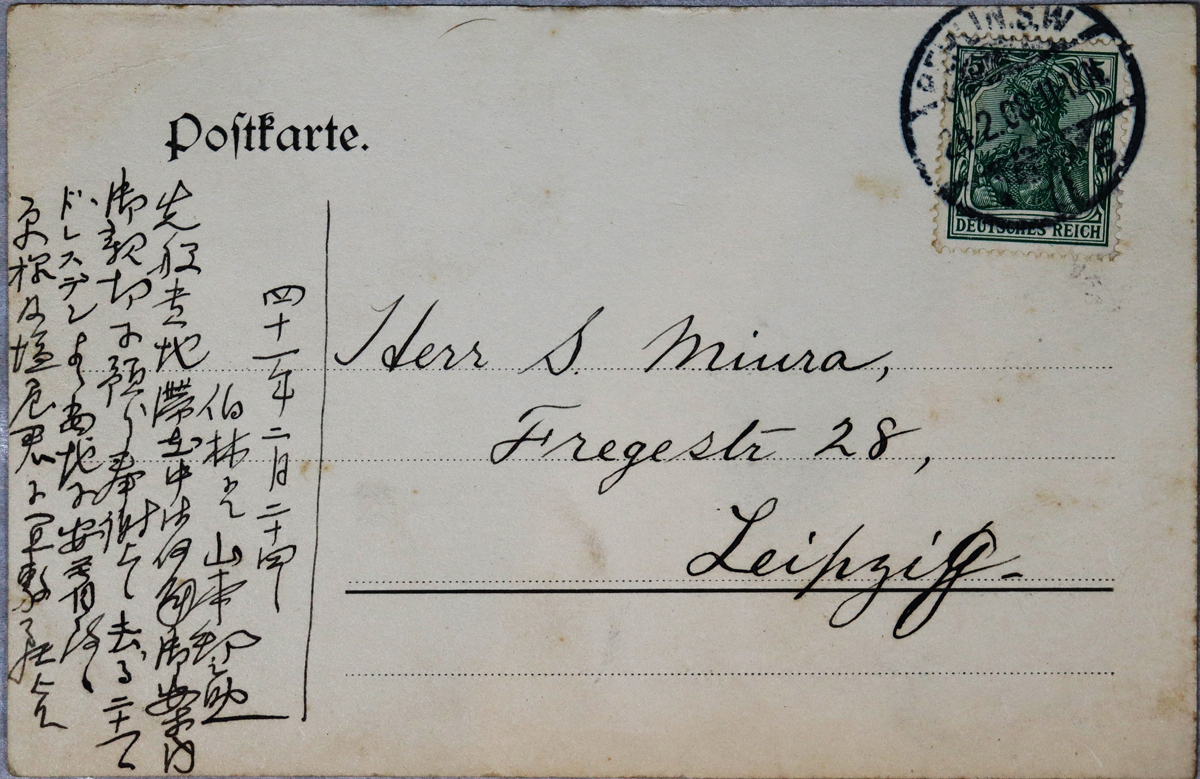 Postkarte.
BERLIN.S.W
2.08.11-12
DEUTSCHES REICH
Herr S. Miura,
Fregestr 28,
Leipzig
四十一年二月二十四日
伯林ニて 山本
先般貴地滞在中は何角御案内
御親切に預り奉謝上候 去る二十一日
ドレスデンより当地に安着
君に宜敷